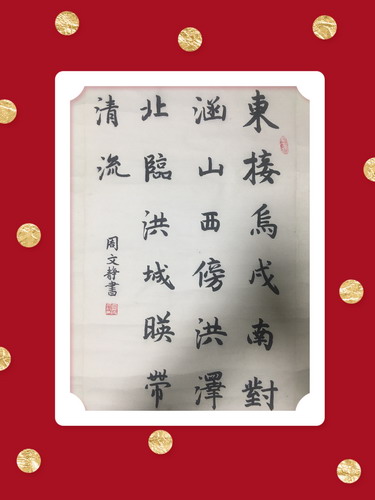 東接烏戍南對
涵山西傍洪澤
北臨洪城暎帶
清流
周文静書